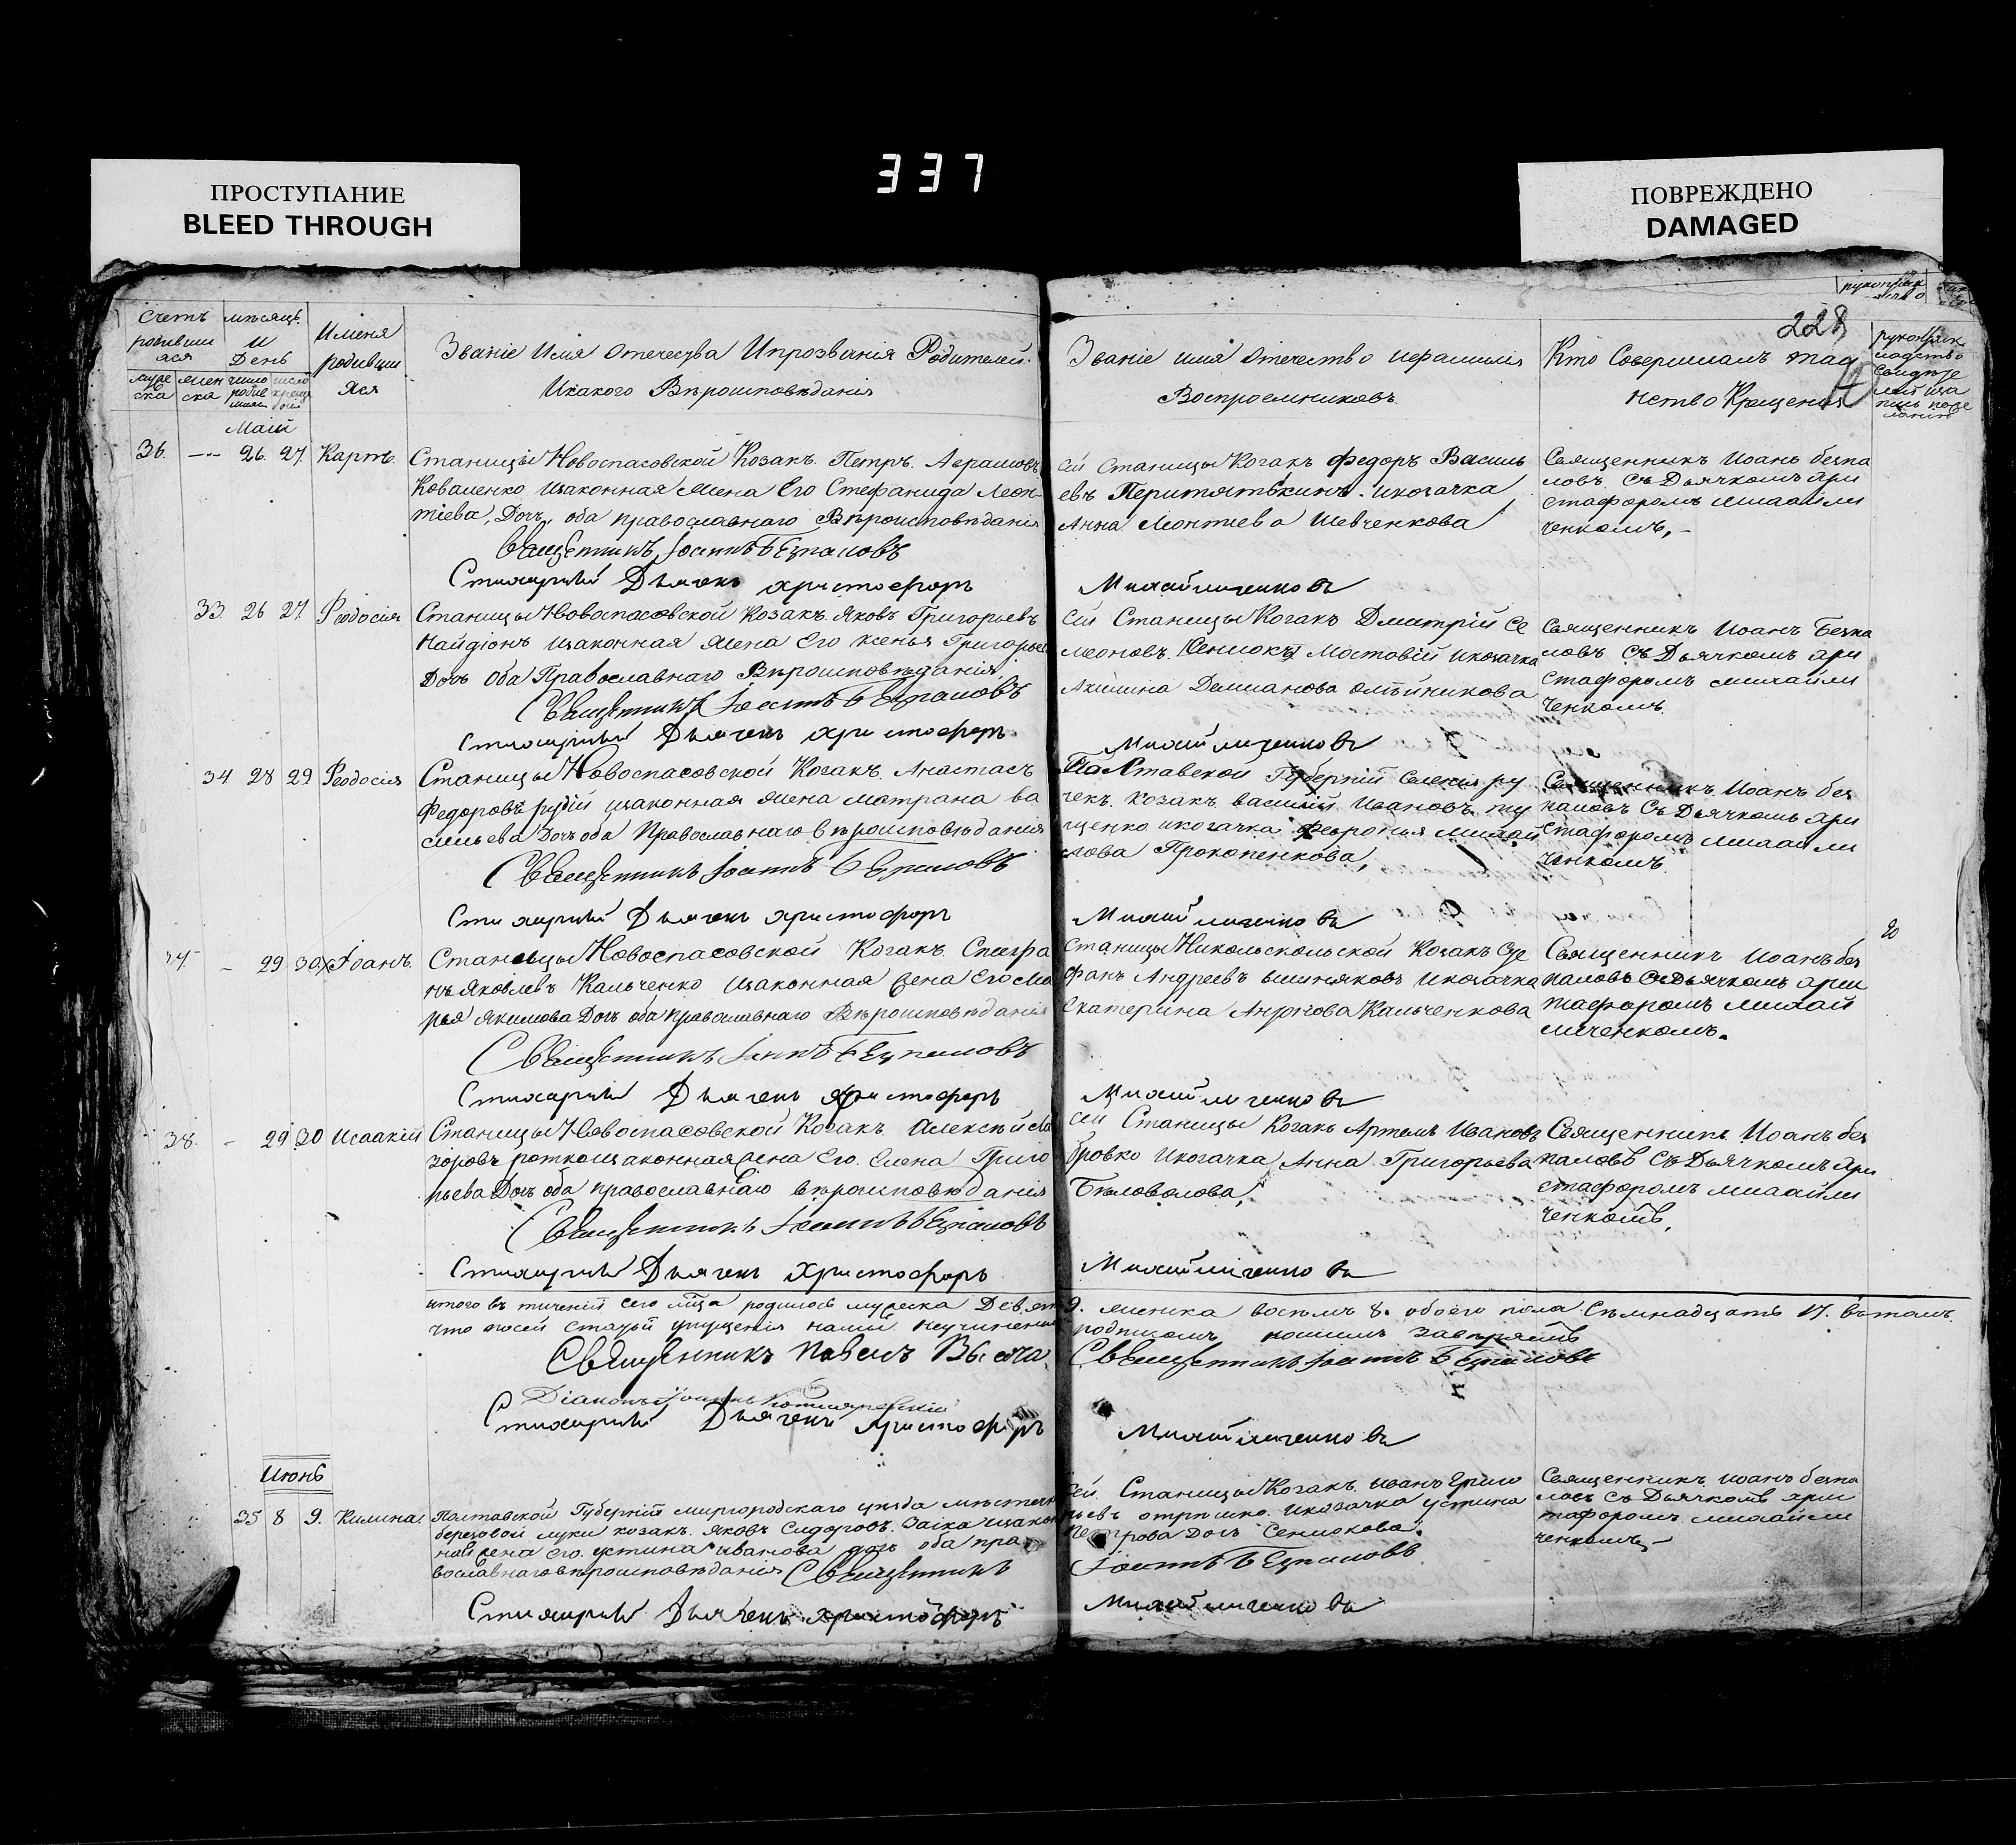 337
ПРОСТУПАНИЕ
BLEED THROUGH
ПОВРЕЖДЕНО
DAMAGED
228
Счетъ
родивши
яся
мѣсяцъ
и
День
Имена
родивши
яся
Званіе Имя Отечества Ипрозванія Родителей
Икакого Вѣроисповѣданія
Званіе имя Отечество ифамилія
Воспроемниковъ
Кто Совершалъ таи
нство Крещенія
Маій
36. 26. 27. Карпъ.
Станицы Новоспасовской Козакъ. Петръ. Аврамовъ
Коваленко изаконная жена Его Стефанида Леон
тіева, Дочь, оба православнаго Вѣроисповѣданія
Священникъ Іоаннъ Безпаловъ
Стихарный Дьячекъ Христофоръ
сей Станицы Козакъ Федоръ Василь
евъ Перитятькинъ. икозачка
Анна Леонтиева Шевченкова
Михайличенковъ
Священникъ Иоанъ безпа
ловъ. съ Дьячкомъ хри
стафоромъ михайли
ченкомъ,
33. 26 27. Феодосія
Станицы Новоспасовской Козакъ. Яковъ Григорьевъ
Найдіонъ изаконная жена Его ксенья Григорьев
Дочь оба Православнаго Вѣроисповѣданія,
Священникъ Іоаннъ Безпаловъ
Стихарный Дьячекъ Христофоръ
сей Станицы Козакъ Дмитрій Се
меоновъ. Мостовій икозачка
Акилина Демианова олѣйникова
Михайличенковъ
Священникъ Иоанъ Безпа
ловъ Съ Дьячкомъ хри
стафоромъ михайли
ченкомъ.
34 28 29 Феодосія
Станицы Новоспасовской Козакъ. Анастасъ
Федоровъ рудій изаконная жена матрана ва
сильева Дочь оба Православнаго вѣроисповѣданія
Священникъ Іоаннъ Безпаловъ
Стихарный Дьячекъ христофоръ
Полтавской Губерніи
чекъ. Козакъ василій Ивановъ
щенко икозачка февронья михай
лова Прокопенкова,
Михайличенковъ
Священникъ Иоанъ без
паловъ Съ Дьячкомъ хри
стафоромъ михайли
ченкомъ
37. 29 30. Іоанъ.
Станицы Новоспасовской Козакъ. Стефа
нъ Яковлевъ Кальченко изаконная жена Его Ма
рья Якимова Дочь оба православнаго Вѣроисповѣданія
Священникъ Іоаннъ Безпаловъ
Стихарный Дьячекъ христофоръ
станицы Никольскольской Козакъ Сте
фанъ Андреевъ вишняковъ икозачка
Екатерина Кальченкова
Михайличенковъ
Священникъ Иоанъ без
паловъ Съ Дьячкомъ хри
тафоромъ михай
личенкомъ.
38. 29 30 Исаакій
Станицы Новоспасовской Козакъ Алексѣй Ла
зоровъ ротко изаконная жена Его. Елена Григо
рьева Дочь оба православнаго вѣроисповѣданія
Священникъ Іоаннъ Безпаловъ
Стихарный Дьячекъ Христофоръ
сей Станицы Козакъ Артемъ Ивановъ
бровко Икозачка Анна Григорьева
Бѣловолова,
Михайличенковъ
Священникъ Иоанъ без
паловъ Съ Дьячкомъ хри
стафоромъ михайли
ченкомъ,
итого въ теченіи сего мца родилось мужска Девять 9. женска восемь 8. обоего пола Семнадцать 17. вътомъ
что посей статьи упущенія нами неучиненно подписомъ нашимъ завѣряемъ
Священникъ Павелъ
Священникъ Іоаннъ Безпаловъ
Діаконъ Іоаннъ
Стихарный Дьячекъ Христофоръ Михайличенковъ
Июнь
35 8 9. Килина
Полтавской Губерніи миргородскаго уезда мѣстечка
березовой луки козакъ. Яковъ Сидоровъ. Заіка изакон
ная жена его. устина иванова дочь оба пра
вославнаго вѣроисповѣданія Священникъ
Стихарный Дьячекъ христофоръ
сей Станицы Козакъ. Иванъ Григо
рьевъ отришко. икозачка устина
Петрова Дочь Сенюкова.
Іоаннъ Безпаловъ
Михайличенковъ
Священникъ Иоанъ безпа
ловъ Съ Дьячкомъ хри
тафоромъ михайли
ченкомъ